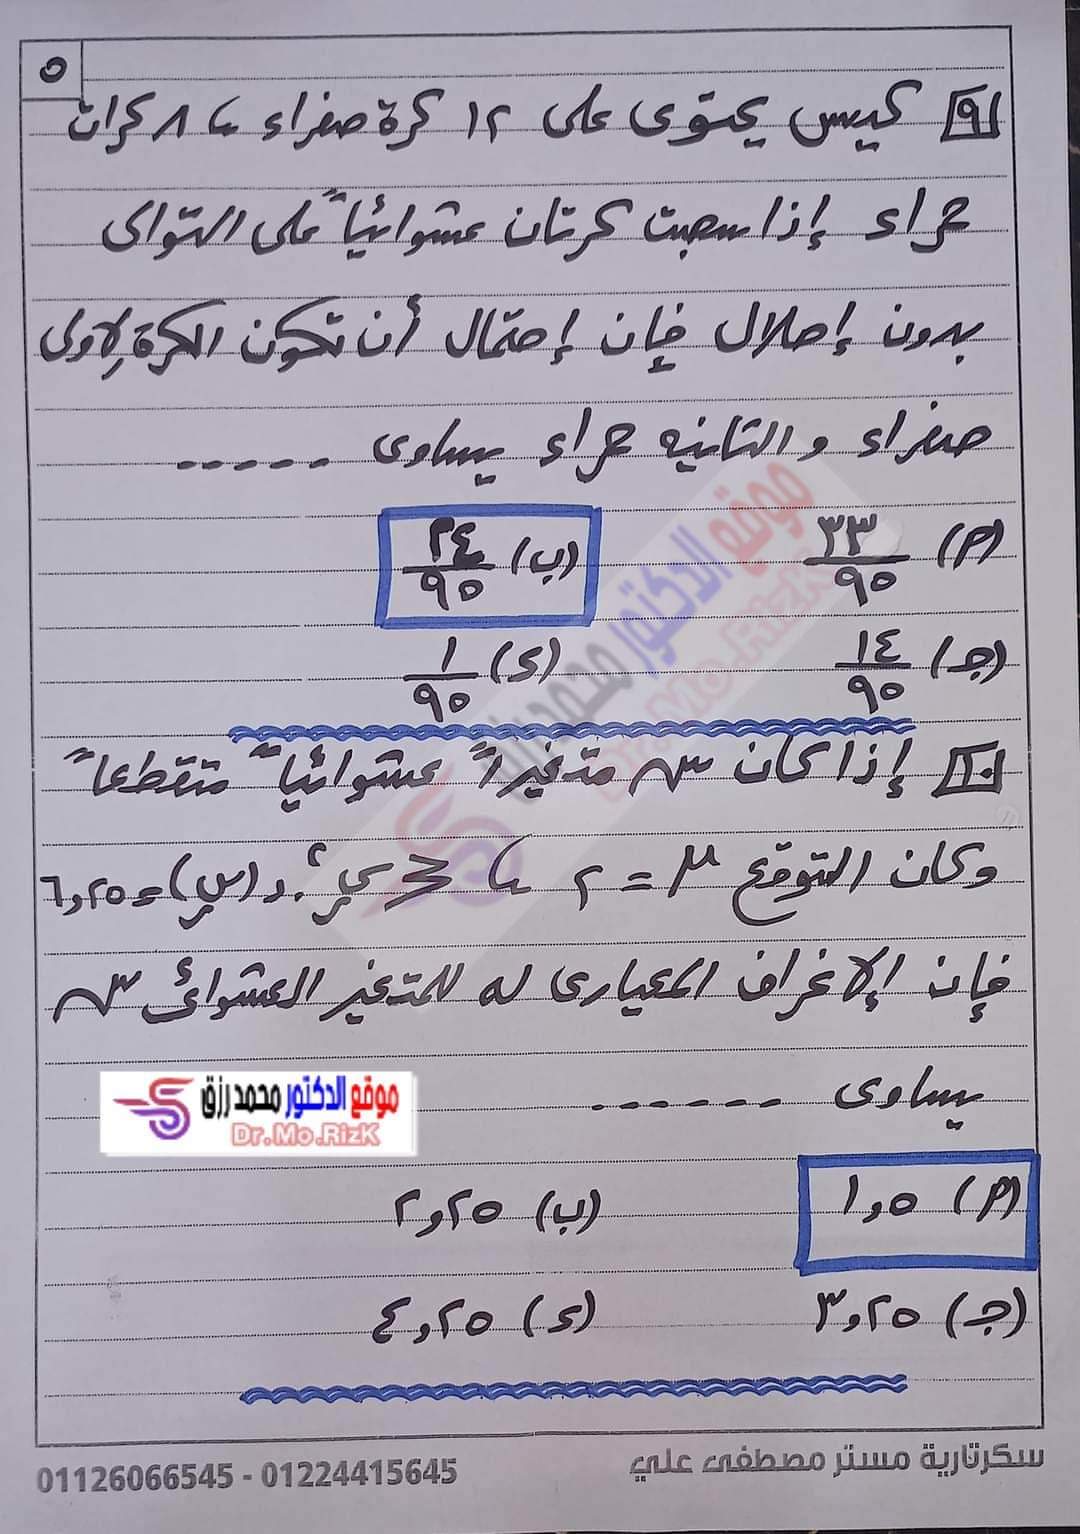 ٥
[٩] كيس يحتوى على ١٢ كرة صفراء ، ٨ كرات
حمراء إذا سحبت كرتان عشوائياً على التوالى
بدون إحلال فإن إحتمال أن تكون الكرة الاولى
صفراء والثانيه حمراء يساوى -----
(أ) ٣٣/٩٥ (ب) ٢٤/٩٥
(جـ) ١٤/٩٥ (د) ١/٩٥
[١٠] إذا كان س متغيراً عشوائياً متقطعاً
وكان التوقع μ = ٢ ، ∑ س ر² . د(س ر) = ٦,٢٥
فإن الإنحراف المعيارى له للمتغير العشوائى س
يساوى ------
موقع الدكتور محمد رزق
Dr.Mo.RizK
(أ) ١,٥ (ب) ٢,٢٥
(جـ) ٣,٢٥ (د) ٤,٢٥
سكرتارية مستر مصطفى علي 01224415645 - 01126066545
موقع الدكتور محمد رزق
Dr.Mo.RizK